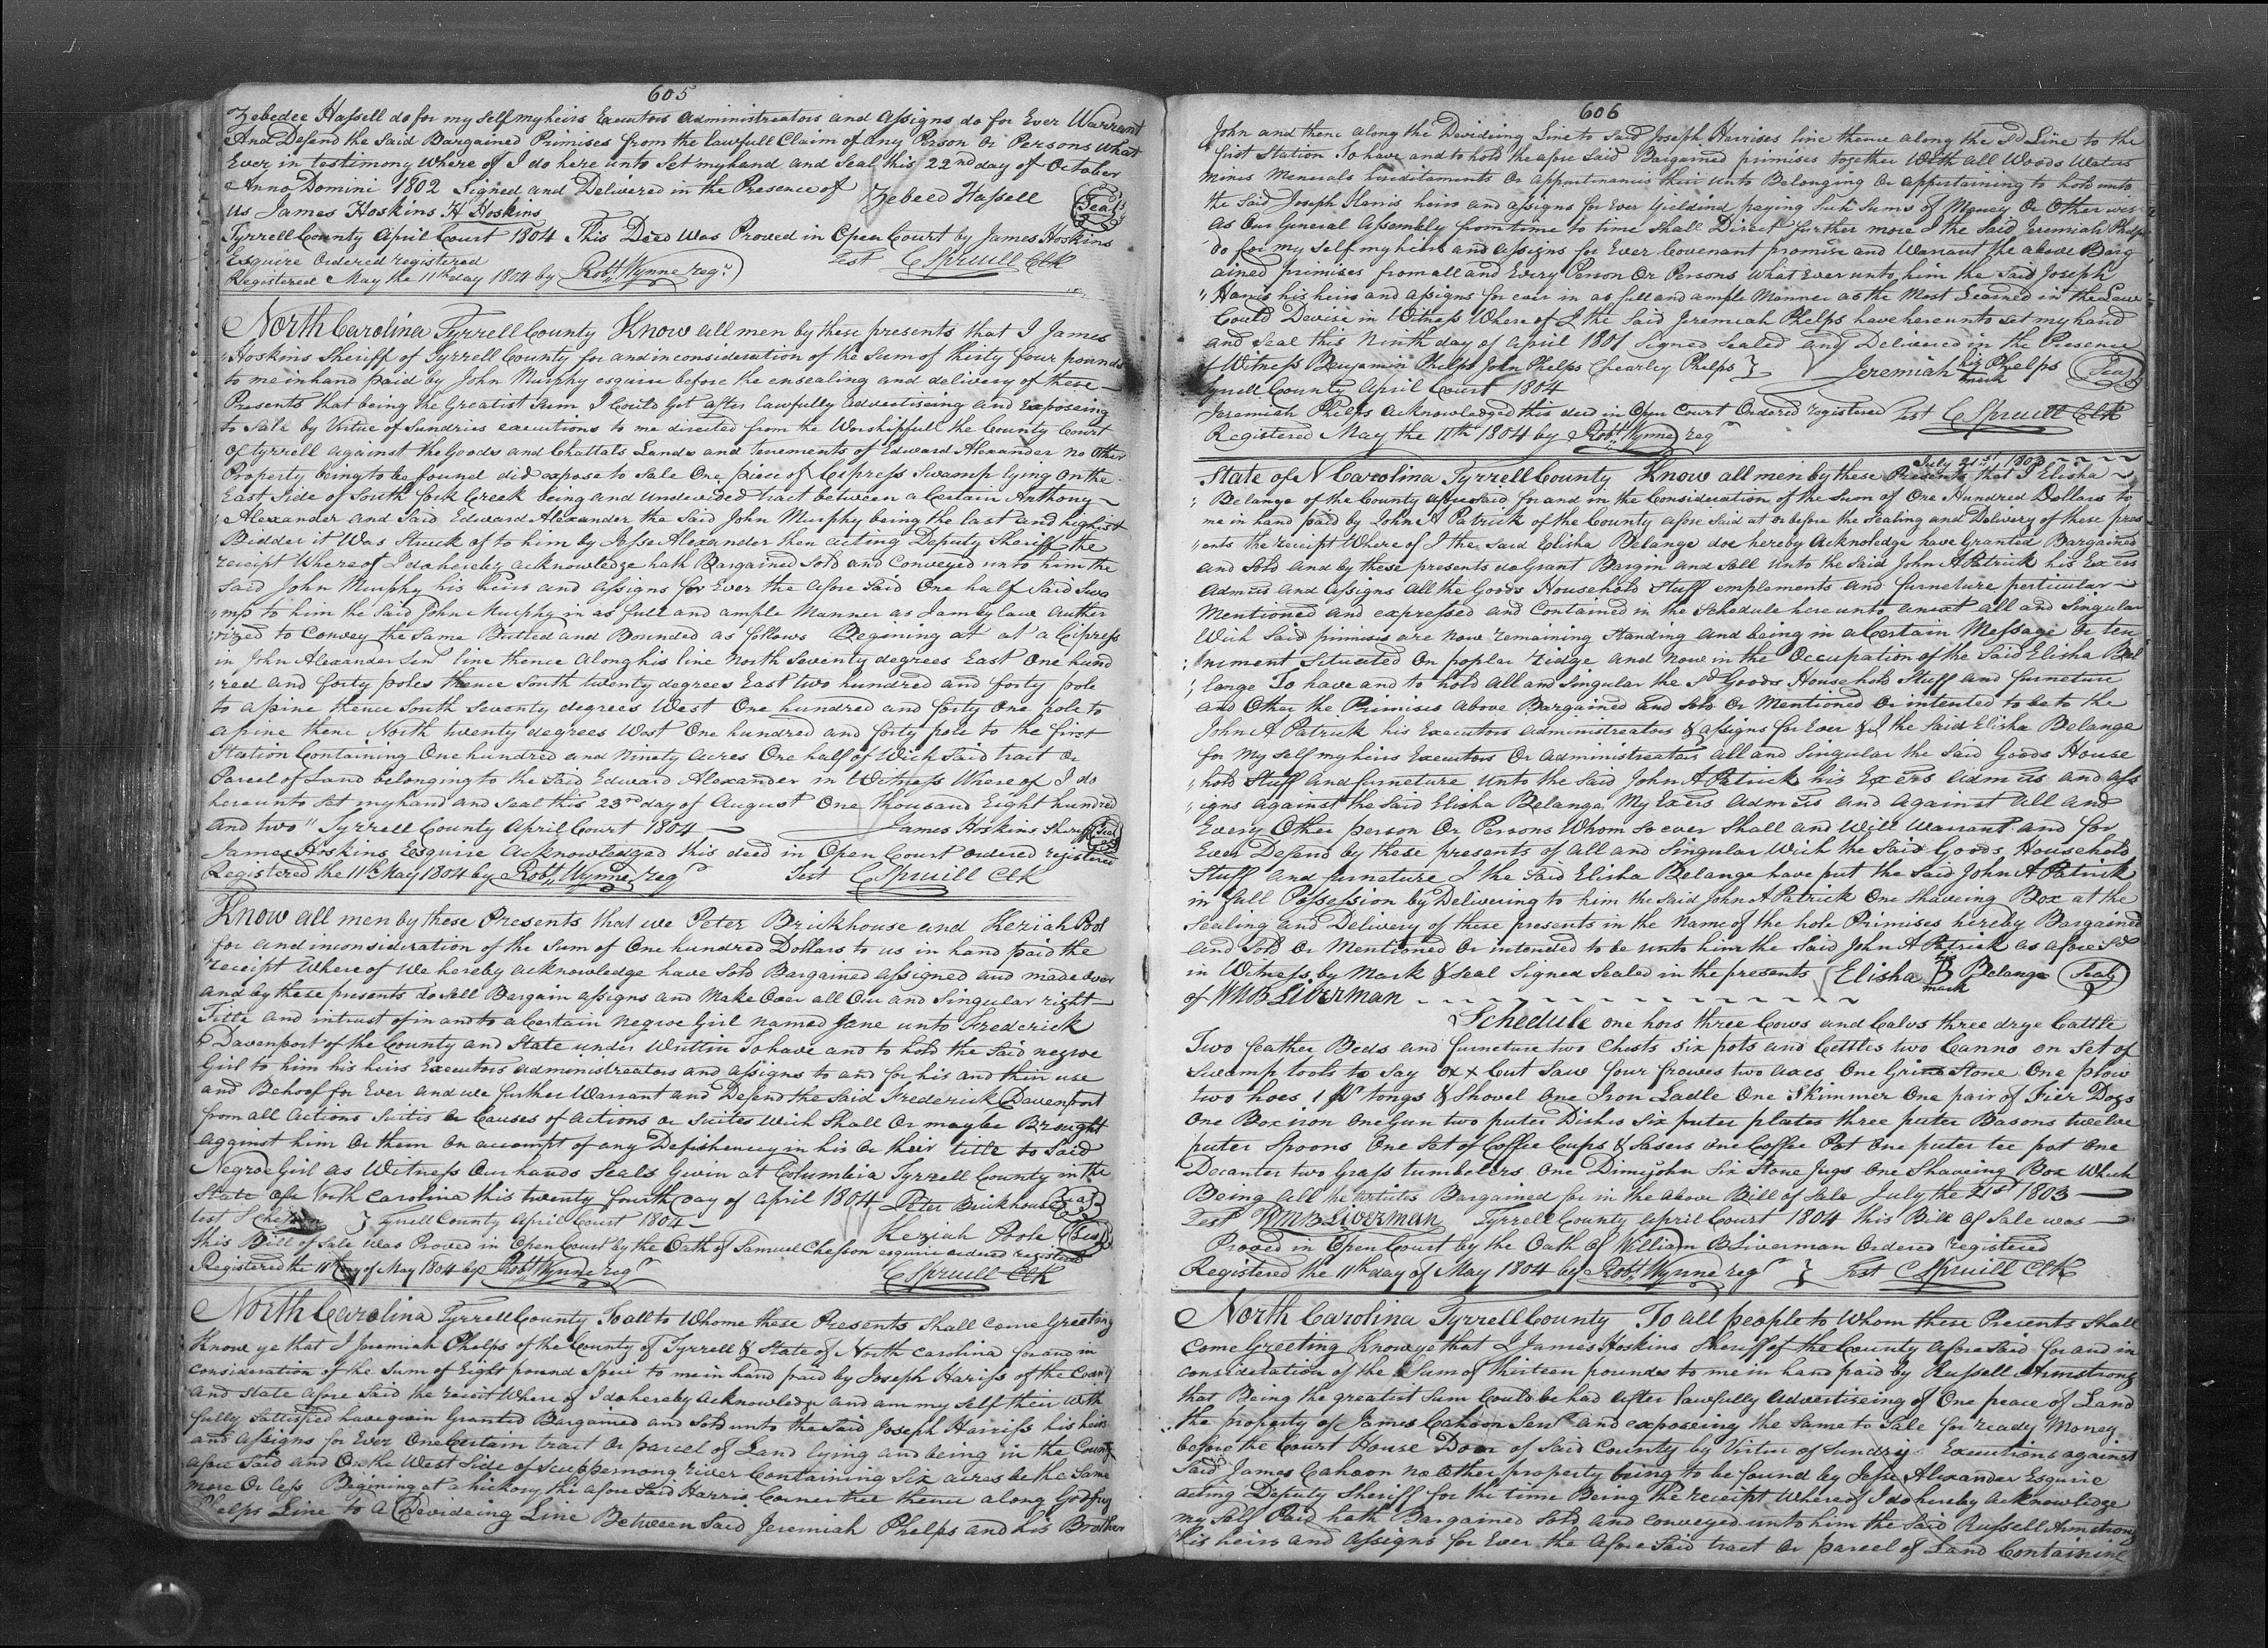 605
Zebedee Hassell do for my Self my heirs Executors Administreators and Assigns do for Ever Warrant
And Defend the Said Bargained Primises from the lawfull Claim of any Person Or Persons What
Ever in testimony Where of I do here unto Set my hand and Seal this 22nd day of October
Anno Domini 1802 Signed and Delivered in the Presence of Zebeed Hassell Seal
Us James Hoskins H Hoskins
Tyrrell County April Court 1804 This Deed Was Proved in Open Court by James Hoskins
Esquire Ordered registered Test C Spruill Clk
Registered May the 11th day 1804 by Robt Wynne regr
North Carolina Tyrrell County Know all men by these presents that I James
Hoskins Sheriff of Tyrrell County for and in consideration of the Sum of thirty four pounds
to me in hand paid by John Murphy esquire before the ensealing and delivery of these
Presents that being the Greatist Sum I Could Get after lawfully advertiseing and Exposeing
to Sale by Virtue of Sundries executions to me directed from the Worshipfull the County Court
of tyrrell against the Goods and Chattals Lands and tenements of Edward Alexander no Other
Property being to be found did expose to Sale One piece of Cipress Swamp lying On the
East Side of South fork Creek being and Undevided tract between a Certain Anthony
Alexander and Said Edward Alexander the Said John Murphy being the last and highest
Bidder it Was Struck of to him by Jesse Alexander then acting Deputy Sheriff the
receipt Where of I do hereby acknowledge hath Bargained Sold and Conveyed unto him the
Said John Murphy his heirs and assigns for Ever the afore Said One half Said Swa
mp to him the Said John Murphy in as full and ample Manner as I am by law Autho
rized to Convey the Same Butted and Bounded as follows Begining at at a Cipress
in John Alexander Senr line thence along his line North Seventy degrees East One hund
red and forty poles thence South twenty degrees East two hundred and forty pole
to a pine thence South Seventy degrees West One hundred and forty One pole to
a pine thence North twenty degrees West One hundred and forty pole to the first
Station Containing One hundred and Ninety Acres One half of Wich Said tract Or
Parcel of Land belonging to the Said Edward Alexander in Witness Where of I do
hereunto Set my hand and Seal this 23rd day of August One thousand Eight hundred
and two Tyrrell County April Court 1804 James Hoskins Sheriff Seal
James Hoskins Esquire Acknowledged this deed in Open Court ordered registered
Registered the 11th May 1804 by Robt Wynne regr Test C Spruill Clk
Know all men by these Presents that we Peter Brickhouse and Keziah Pool
for and in consideration of the Sum of One hundred Dollars to us in hand paid the
receipt Where of We hereby acknowledge have Sold Bargained assigned and made over
and by these presents do Sell Bargain assigns and Make Over all Our and Singular right
Title and intrust of in and to a Certain negroe Girl named Jane unto Frederick
Davenport of the County and State under Writtin To have and to hold the Said negroe
Girl to him his heirs Executors administreators and assigns to and for his and their use
and Behoof for Ever and we further Warrant and Defend the Said Frederick Davenport
from all Actions Suits or Causes of Actions or Suites Wich Shall Or may be Brought
against him Or them On accompt of any Defishencey in his Or their title to Said
Negroe Girl as Witness Our hands Seals Givin at Columbia Tyrrell County in the
State of North Carolina this twenty fourth day of April 1804 Peter Brickhouse Seal
test S Chesson Tyrrell County April Court 1804 Keziah Poole Seal
this Bill of Sale Was Proved in Open Court by the Oath of Samuel Chesson esquire ordered registered
Registered the 11th day of May 1804 by Robt Wynne regr C Spruill Clk
North Carolina Tyrrell County To all to Whome these Presents Shall come Greeting
Know ye that I Jeremiah Phelps of the County of Tyrrell & State of North Carolina for and in
consideration of the Sum of Eight pound Specie to me in hand paid by Joseph Hariss of the County
and State afore Said the receit Where of I do hereby acknowledge and am my Self their with
fully Sattisfied have givin Granted Bargained and Sold unto the Said Joseph Harriss his heirs
and assigns for Ever One Certain tract Or parcel of Land lying and being in the County
afore Said and On the West Side of Scuppernong river Containing Six acres be the Same
more Or less Begining at a hickory the afore Said Harris Corner tree thence along Godfrey
Phelps Line to a Devideing Line Between Said Jeremiah Phelps and his Brother
606
John and thence along the Devideing Line to Said Joseph Harrises line thence along the Sd Line to the
first Station To have and to hold the afore Said Bargained primises together With all Woods Waters
Mines Menerals hereditaments Or appurtinances their unto Belonging Or appertaining to hold unto
the Said Joseph Harris heirs and assigns for Ever Yieldind paying Such Sums of Money Or Other wise
As Our General Assembly from time to time Shall Direct further more I the Said Jeremiah Phelps
do for my Self my heirs and assigns for Ever Covenant promise and Warrant the above Barg
ained primises from all and Every Person Or Persons What Ever unto him the Said Joseph
Harris his heirs and assigns for ever in as full and ample Manner as the Most Learned in the Law
Could Devise in Witness Where of I the Said Jeremiah Phelps have hereunto set my hand
and Seal this Ninth day of April 1801 Signed Sealed and Delivered in the Presence
of Witness Benjamin Phelps John Phelps Chearley Phelps Jeremiah his mark Phelps Seal
Tyrrell County April Court 1804
Jeremiah Phelps Acknowledged this deed in Open Court Ordered registered Test C Spruill Clk
Registered May the 11th 1804 by Robt Wynne regr
July 21st 1803
State of N Carolina Tyrrell County Know all men by these Presents that I Elisha
Belange of the County afore Said for and in the Consideration of the Sum of One Hundred Dollars to
me in hand paid by John A Patrick of the County afore Said at or before the Sealing and Delivery of these pres
ents the receipt Where of I the Said Elisha Belange doe hereby Acknoledge have Granted Bargained
and Sold and by these presents do Grant Bargin and Sell Unto the Said John A Patrick his Exers
Admers and Assigns All the Goods Household Stuff emplements and furneture perticular
Mentioned and expressed and Contained in the Schedule hereunto anext all and Singular
Wich Said primises are now remaining Standing and being in a Certain Message Or ten
nement Situated On poplar ridge and Now in the Occupation of the Said Elisha Bel
lange To have and to hold All and Singular the Sd Goods Household Stuff and furneture
and Other the Primises above Bargained and Sold Or Mentioned Or intented to be to the
John A Patrick his Executors administreators & assigns for Ever & I the Said Elisha Belange
for My Self my heirs Executors Or Administreators all and Singular the Said Goods House
hold Stuff and furneture Unto the Said John A Patrick his Exers admers and ass
igns against the Said Elisha Belange, My Exers Admers and against All and
Every Other person Or Persons Whom So ever Shall and Will Warrant and for
Ever Defend by these presents of all and Singular Wich the Said Goods Household
Stuff and furnature I the Said Elisha Belange have put the Said John A Patrick
in full Possession by Delivering to him the Said John A Patrick One Shaveing Box at the
Sealing and Delivery of these presents in the Name of the hole Primises hereby Bargained
and Sold Or Mentioned Or intended to be unto him the Said John A Patrick as afore Sd
in Witness by Mark & Seal Signed Sealed in the presents Elisha his B mark Belange Seal
of Wm B Liverman
Schedule one hors three Cows and Calvs three drye Cattle
Two feather Beds and furneture two Chests Six pots and Cettles two Canno on Set of
Swamp tools to Say Ox x Cut Saw four frowes two axes One Grine Stone One plow
two hoes 1 pr tongs & Shovel One Iron Ladle One Skimmer One pair of Fier Dogs
One Box iron One Gun two puter Dishes Six puter plates three puter Basons twelve
puter Spoons One Set of Coffee Cups & Sasers One Coffee Pot One puter tee pot One
Decanter two Grass tumbelers One Dimejohn Six Stone Jugs One Shaveing Box Which
Being all the Articles Bargained for in the above Bill of Sale July the 21st 1803
Test Wm B Liverman Tyrrell County April Court 1804 this Bill of Sale was
Proved in Open Court by the Oath of William B Liverman Ordered registered
Registered the 11th day of May 1804 by Robt Wynne regr Test C Spruill Clk
North Carolina Tyrrell County To all people to Whom these Presents Shall
Come Greeting Know ye that I James Hoskins Sheriff of the County afore Said for and in
consideration of the Sum of thirteen pounds to me in hand paid by Russell Armstrong
that Being the greatest Sum Could be had after lawfully advertiseing of One peace of Land
the property of James Cahoon Senr and exposeing the Same to Sale for ready Money
before the Court House Door of Said County by Virtue of Sundry Executions against
Said James Cahoon no Other property being to be found by Jesse Alexander Esquire
acting Deputy Sheriff for the time Being the receipt Where of I do hereby acknowledge
my Self Paid hath Bargained Sold and conveyed unto him the Said Russell Armstrong
his heirs and assigns for Ever the afore Said tract Or parcel of Land Containing